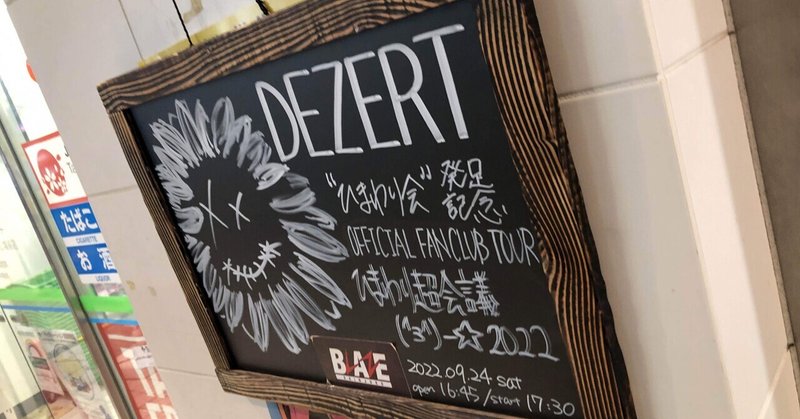 DEZERT
"ひまわり会"発足
記念
OFFICIAL FANCLUB TOUR
ひまわり超会議
(^3^)ー☆2022
BLAZE
2022.09.24 sat
open 16:45/start 17:30
たばこ
CIGARETTE
お酒
LIQUOR